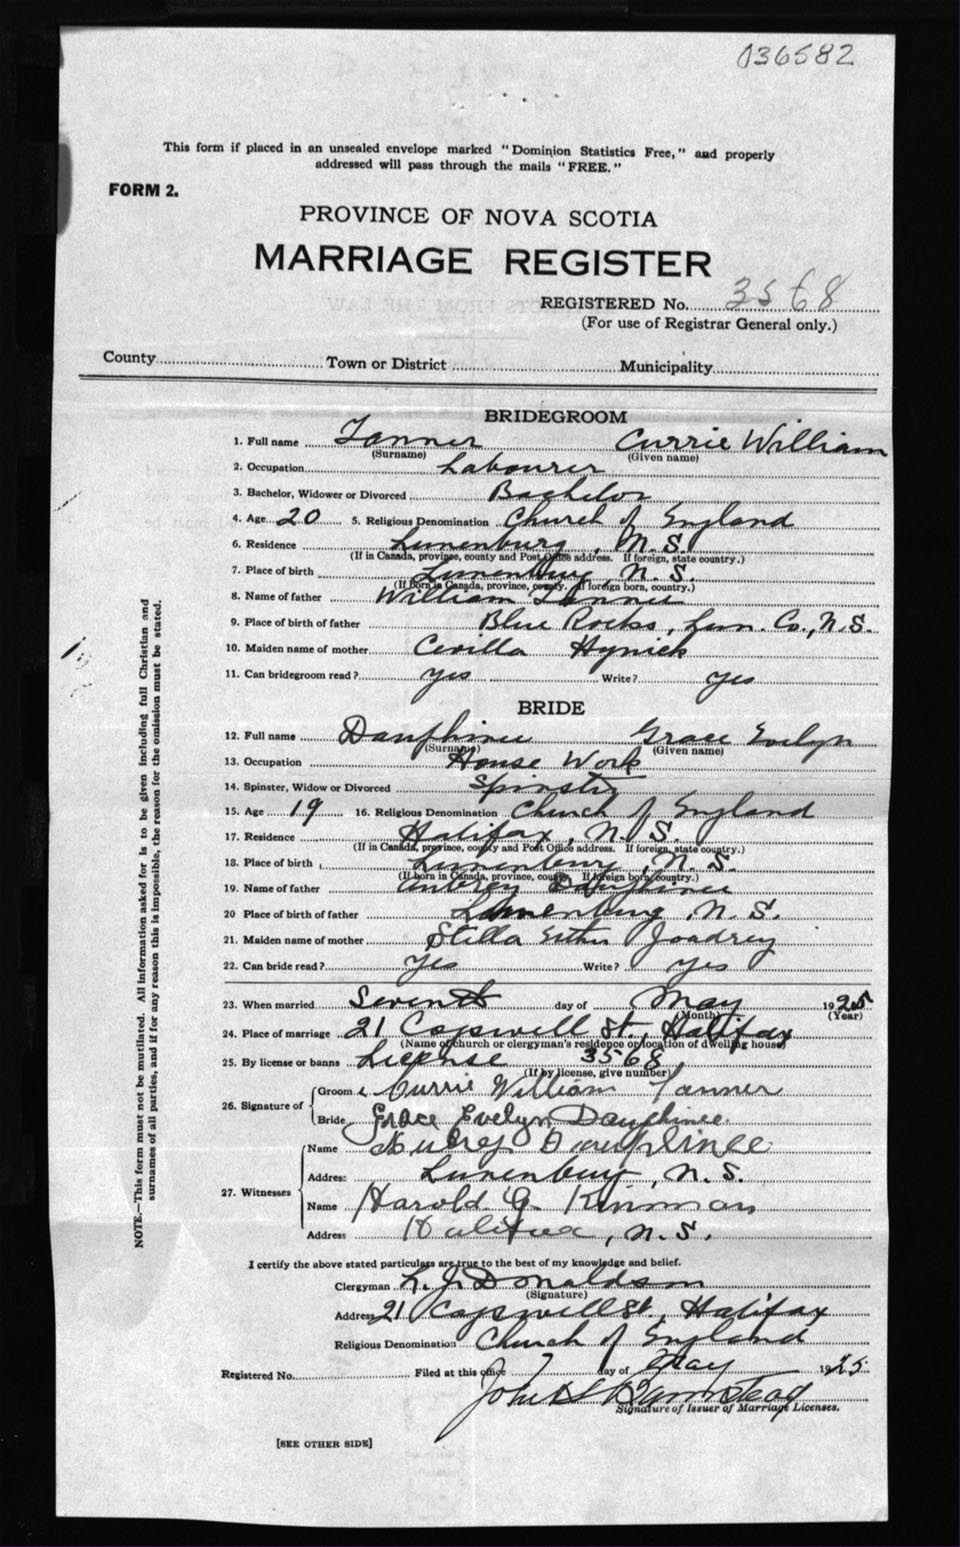 036582
This form if placed in an unsealed envelope marked "Dominion Statistics Free," and properly
addressed will pass through the mails "FREE."
FORM 2.
PROVINCE OF NOVA SCOTIA
MARRIAGE REGISTER
REGISTERED No. 3568
(For use of Registrar General only.)
County Town or District Municipality
BRIDEGROOM
1. Full name Tanner Currie William
(Surname) (Given name)
2. Occupation Labourer
3. Bachelor, Widower or Divorced Bachelor
4. Age 20 5. Religious Denomination Church of England
6. Residence Lunenburg, N.S.
(If in Canada, province, county and Post Office address. If foreign, state country.)
7. Place of birth Lunenburg N.S.
(If born in Canada, province, county. If foreign born, country.)
8. Name of father William Tanner
9. Place of birth of father Blue Rocks, Lun. Co., N.S.
10. Maiden name of mother Cevilla Hynick
11. Can bridegroom read? yes Write? yes
BRIDE
12. Full name Dauphinee Grace Evelyn
(Surname) (Given name)
13. Occupation House Work
14. Spinster, Widow or Divorced Spinster
15. Age 19 16. Religious Denomination Church of England
17. Residence Halifax, N.S.
(If in Canada, province, county and Post Office address. If foreign, state country.)
18. Place of birth Lunenburg, N.S.
(If born in Canada, province, county. If foreign born, country.)
19. Name of father Aubrey Dauphinee
20 Place of birth of father Lunenburg, N.S.
21. Maiden name of mother Stella Esther Joudrey
22. Can bride read? yes Write? yes
23. When married Seventh day of May 1925
(Month) (Year)
24. Place of marriage 21 Cogswell St., Halifax
(Name of church or clergyman's residence or location of dwelling house)
25. By license or banns License 3568
(If by license, give number)
26. Signature of Groom Currie William Tanner
Bride Grace Evelyn Dauphinee
27. Witnesses Name Aubrey Dauphinee
Address Lunenburg, N.S.
Name Harold G.
Address Halifax, N.S.
I certify the above stated particulars are true to the best of my knowledge and belief.
Clergyman L. J. Donaldson
(Signature)
Address 21 Cogswell St., Halifax
Religious Denomination Church of England
Registered No. Filed at this office 7 day of May 1925
John H. Barnstead
Signature of Issuer of Marriage Licenses.
[SEE OTHER SIDE]
NOTE.—This form must not be mutilated. All information asked for is to be given including full Christian and
surnames of all parties, and if for any reason this is impossible, the reason for the omission must be stated.